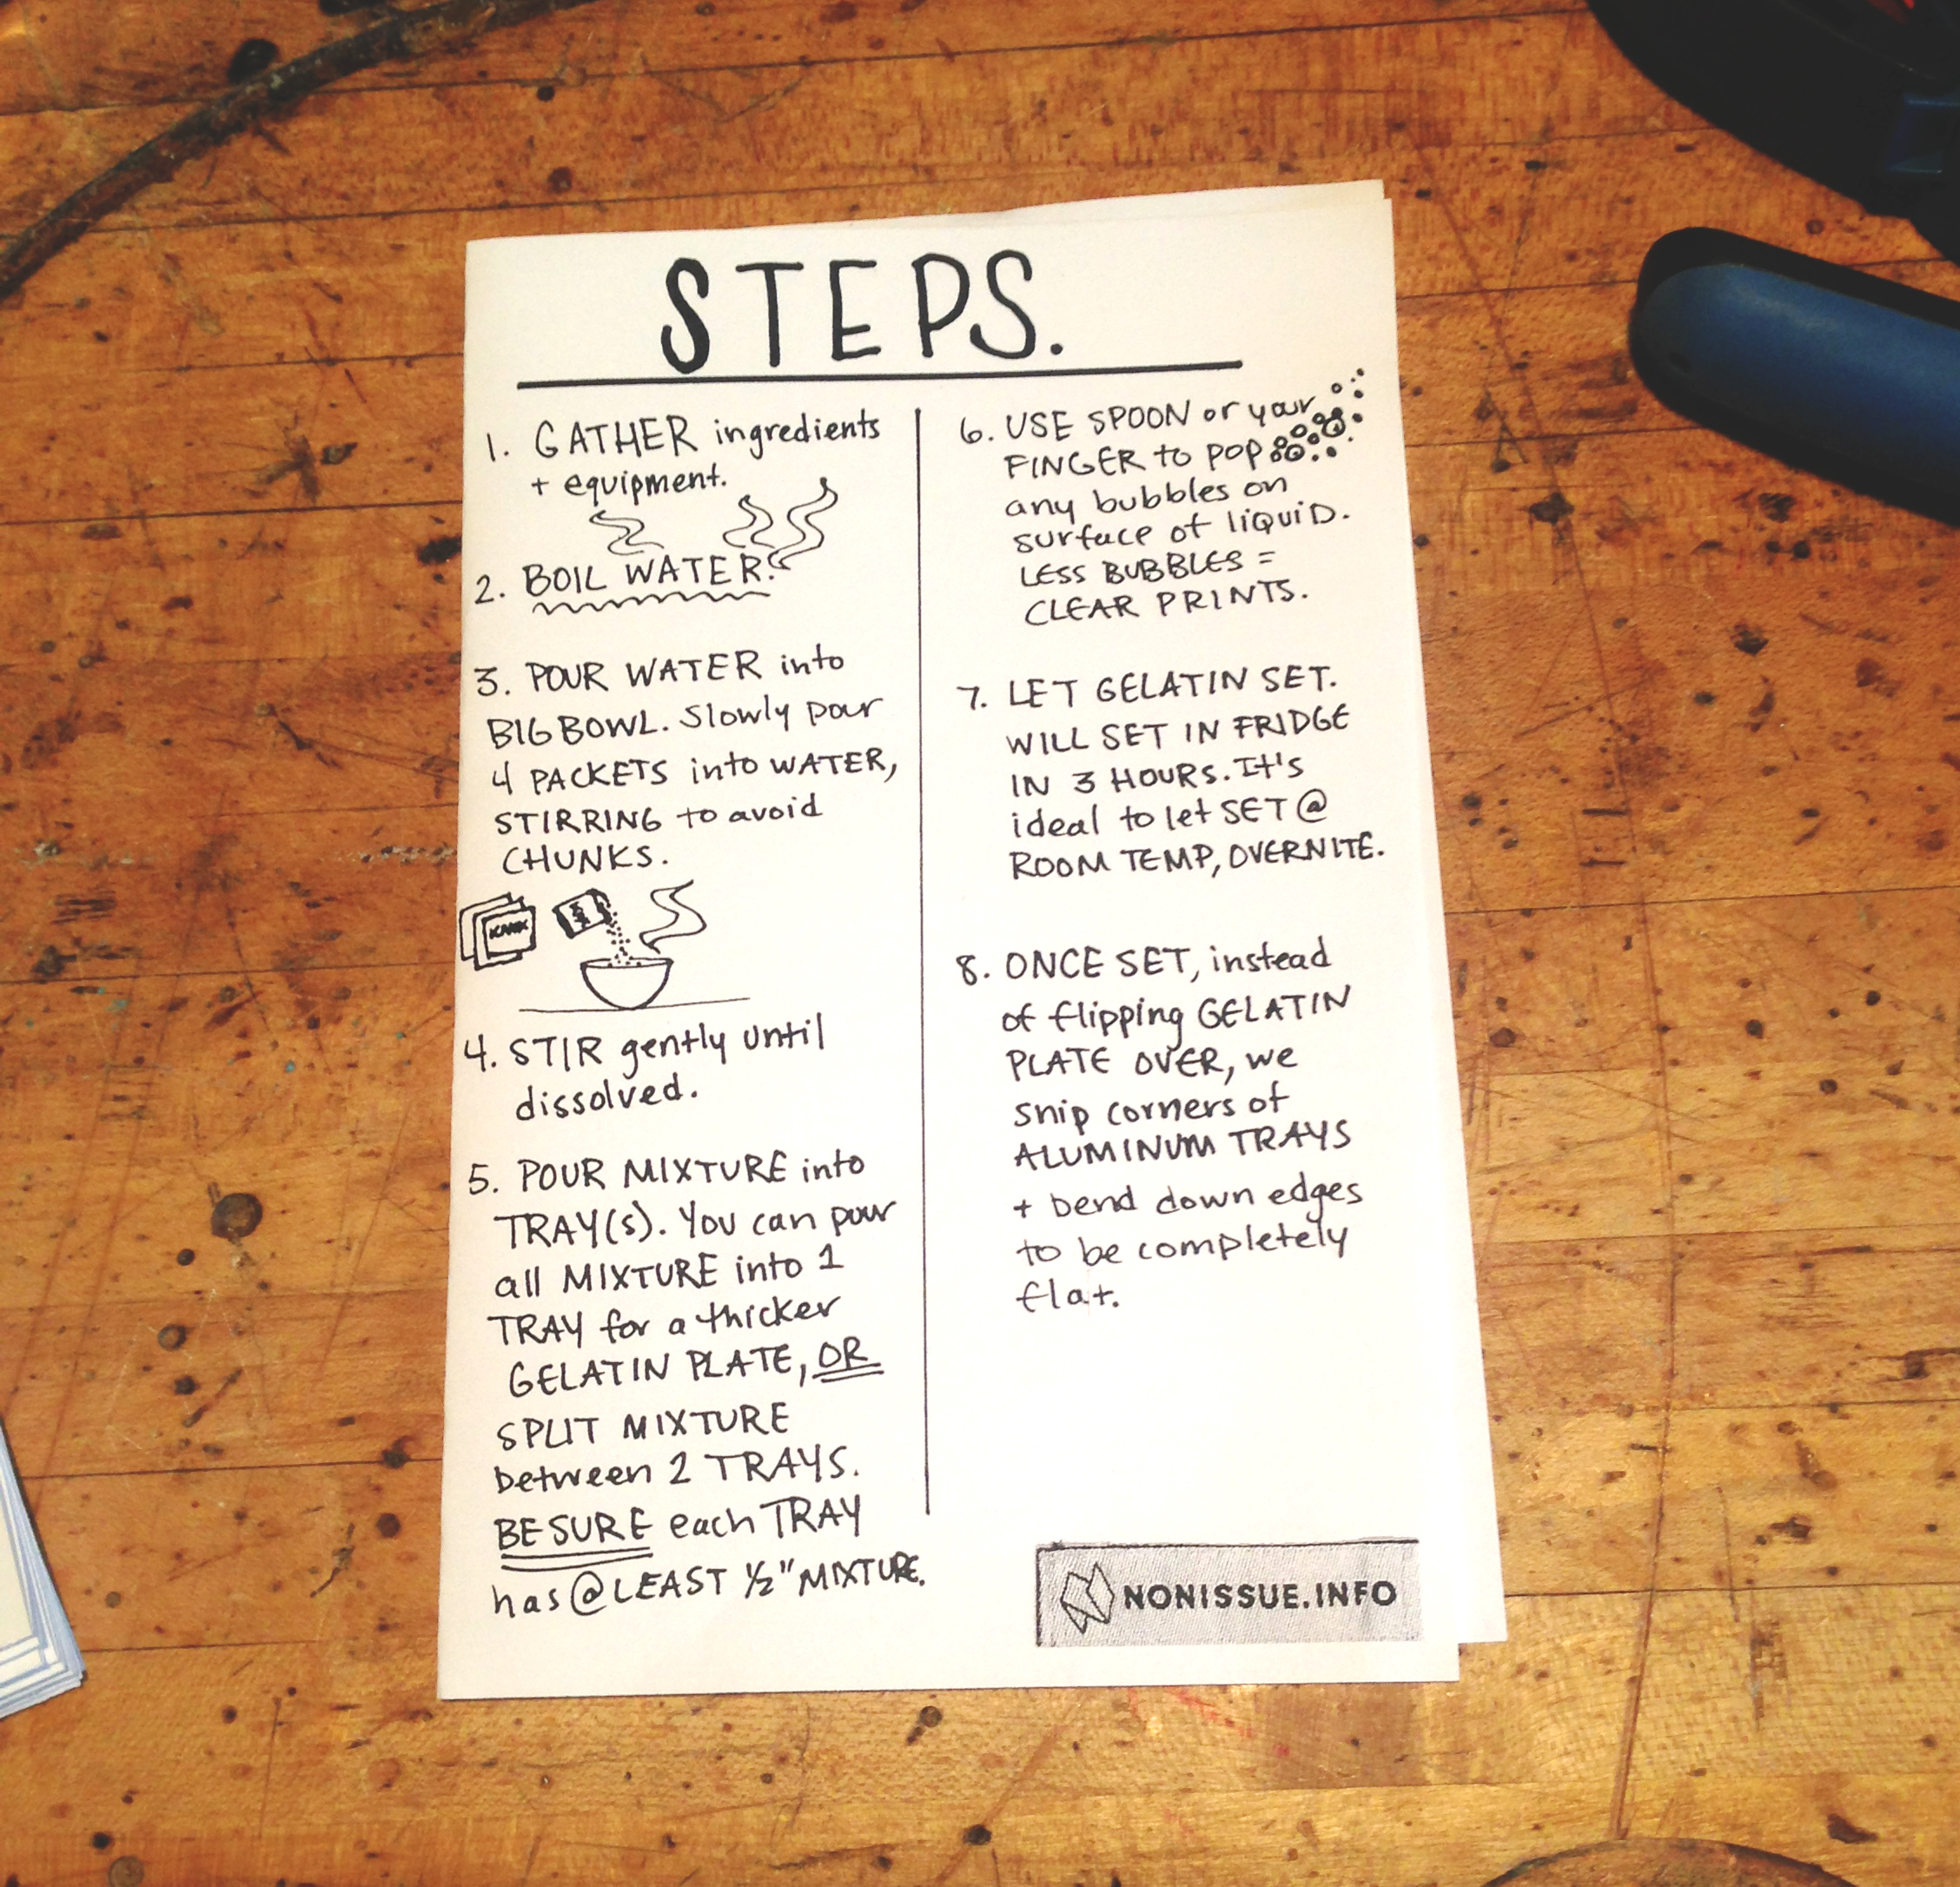 STEPS.
1. GATHER ingredients
+ equipment.
2. BOIL WATER.
3. POUR WATER into
BIG BOWL. Slowly pour
4 PACKETS into WATER,
STIRRING to avoid
CHUNKS.
4. STIR gently until
dissolved.
5. POUR MIXTURE into
TRAY(s). You can pour
all MIXTURE into 1
TRAY for a thicker
GELATIN PLATE, OR
SPLIT MIXTURE
between 2 TRAYS.
BE SURE each TRAY
has @ LEAST ½" MIXTURE.
6. USE SPOON or your
FINGER to POP
any bubbles on
surface of LIQUID.
LESS BUBBLES =
CLEAR PRINTS.
7. LET GELATIN SET.
WILL SET IN FRIDGE
IN 3 HOURS. It's
ideal to let SET @
ROOM TEMP, OVERNITE.
8. ONCE SET, instead
of flipping GELATIN
PLATE OVER, we
snip corners of
ALUMINUM TRAYS
+ bend down edges
to be completely
flat.
NONISSUE.INFO